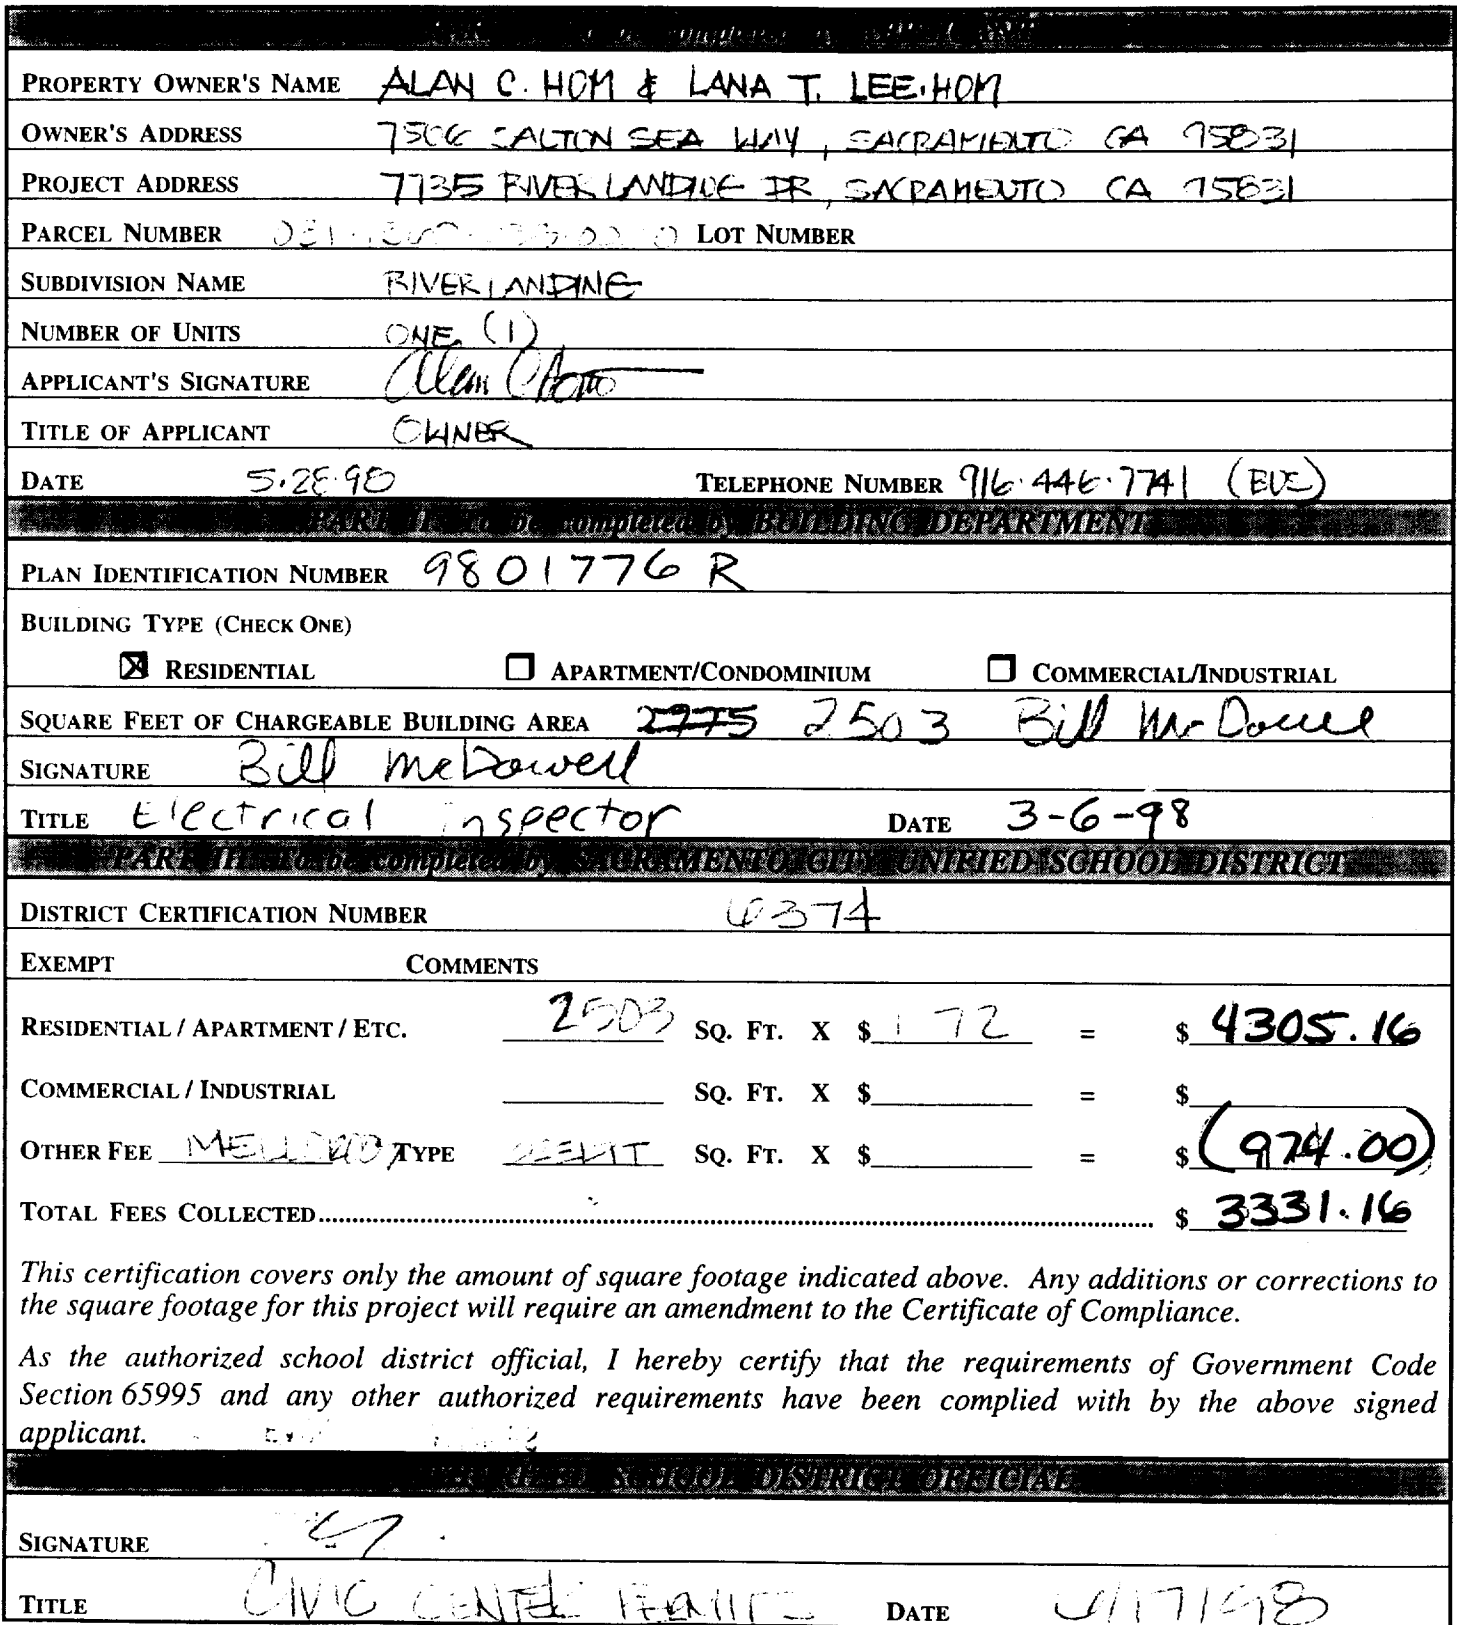 to be completed by APPLICANT
PROPERTY OWNER'S NAME ALAN C. HOM & LANA T. LEE-HOM
OWNER'S ADDRESS 7506 SALTON SEA WAY, SACRAMENTO CA 95831
PROJECT ADDRESS 7735 RIVER LANDING DR, SACRAMENTO CA 95831
PARCEL NUMBER LOT NUMBER
SUBDIVISION NAME RIVER LANDING
NUMBER OF UNITS ONE (1)
APPLICANT'S SIGNATURE Alan C Hom
TITLE OF APPLICANT OWNER
DATE 5.28.98 TELEPHONE NUMBER 916.446.7741 (EVE)
PART II To be completed by BUILDING DEPARTMENT
PLAN IDENTIFICATION NUMBER 9801776 R
BUILDING TYPE (CHECK ONE)
☒ RESIDENTIAL ☐ APARTMENT/CONDOMINIUM ☐ COMMERCIAL/INDUSTRIAL
SQUARE FEET OF CHARGEABLE BUILDING AREA 2775 2503 Bill McDowell
SIGNATURE Bill McDowell
TITLE Electrical inspector DATE 3-6-98
PART III To be completed by SACRAMENTO CITY UNIFIED SCHOOL DISTRICT
DISTRICT CERTIFICATION NUMBER 6374
EXEMPT COMMENTS
RESIDENTIAL / APARTMENT / ETC. 2503 SQ. FT. X $ 1 72 = $ 4305.16
COMMERCIAL / INDUSTRIAL SQ. FT. X $ = $
OTHER FEE MELLO ROO TYPE CREDIT SQ. FT. X $ = $ (974.00)
TOTAL FEES COLLECTED $ 3331.16
This certification covers only the amount of square footage indicated above. Any additions or corrections to
the square footage for this project will require an amendment to the Certificate of Compliance.
As the authorized school district official, I hereby certify that the requirements of Government Code
Section 65995 and any other authorized requirements have been complied with by the above signed
applicant.
AUTHORIZED SCHOOL DISTRICT OFFICIAL
SIGNATURE
TITLE CIVIC CENTER PERMITS DATE 6/17/98